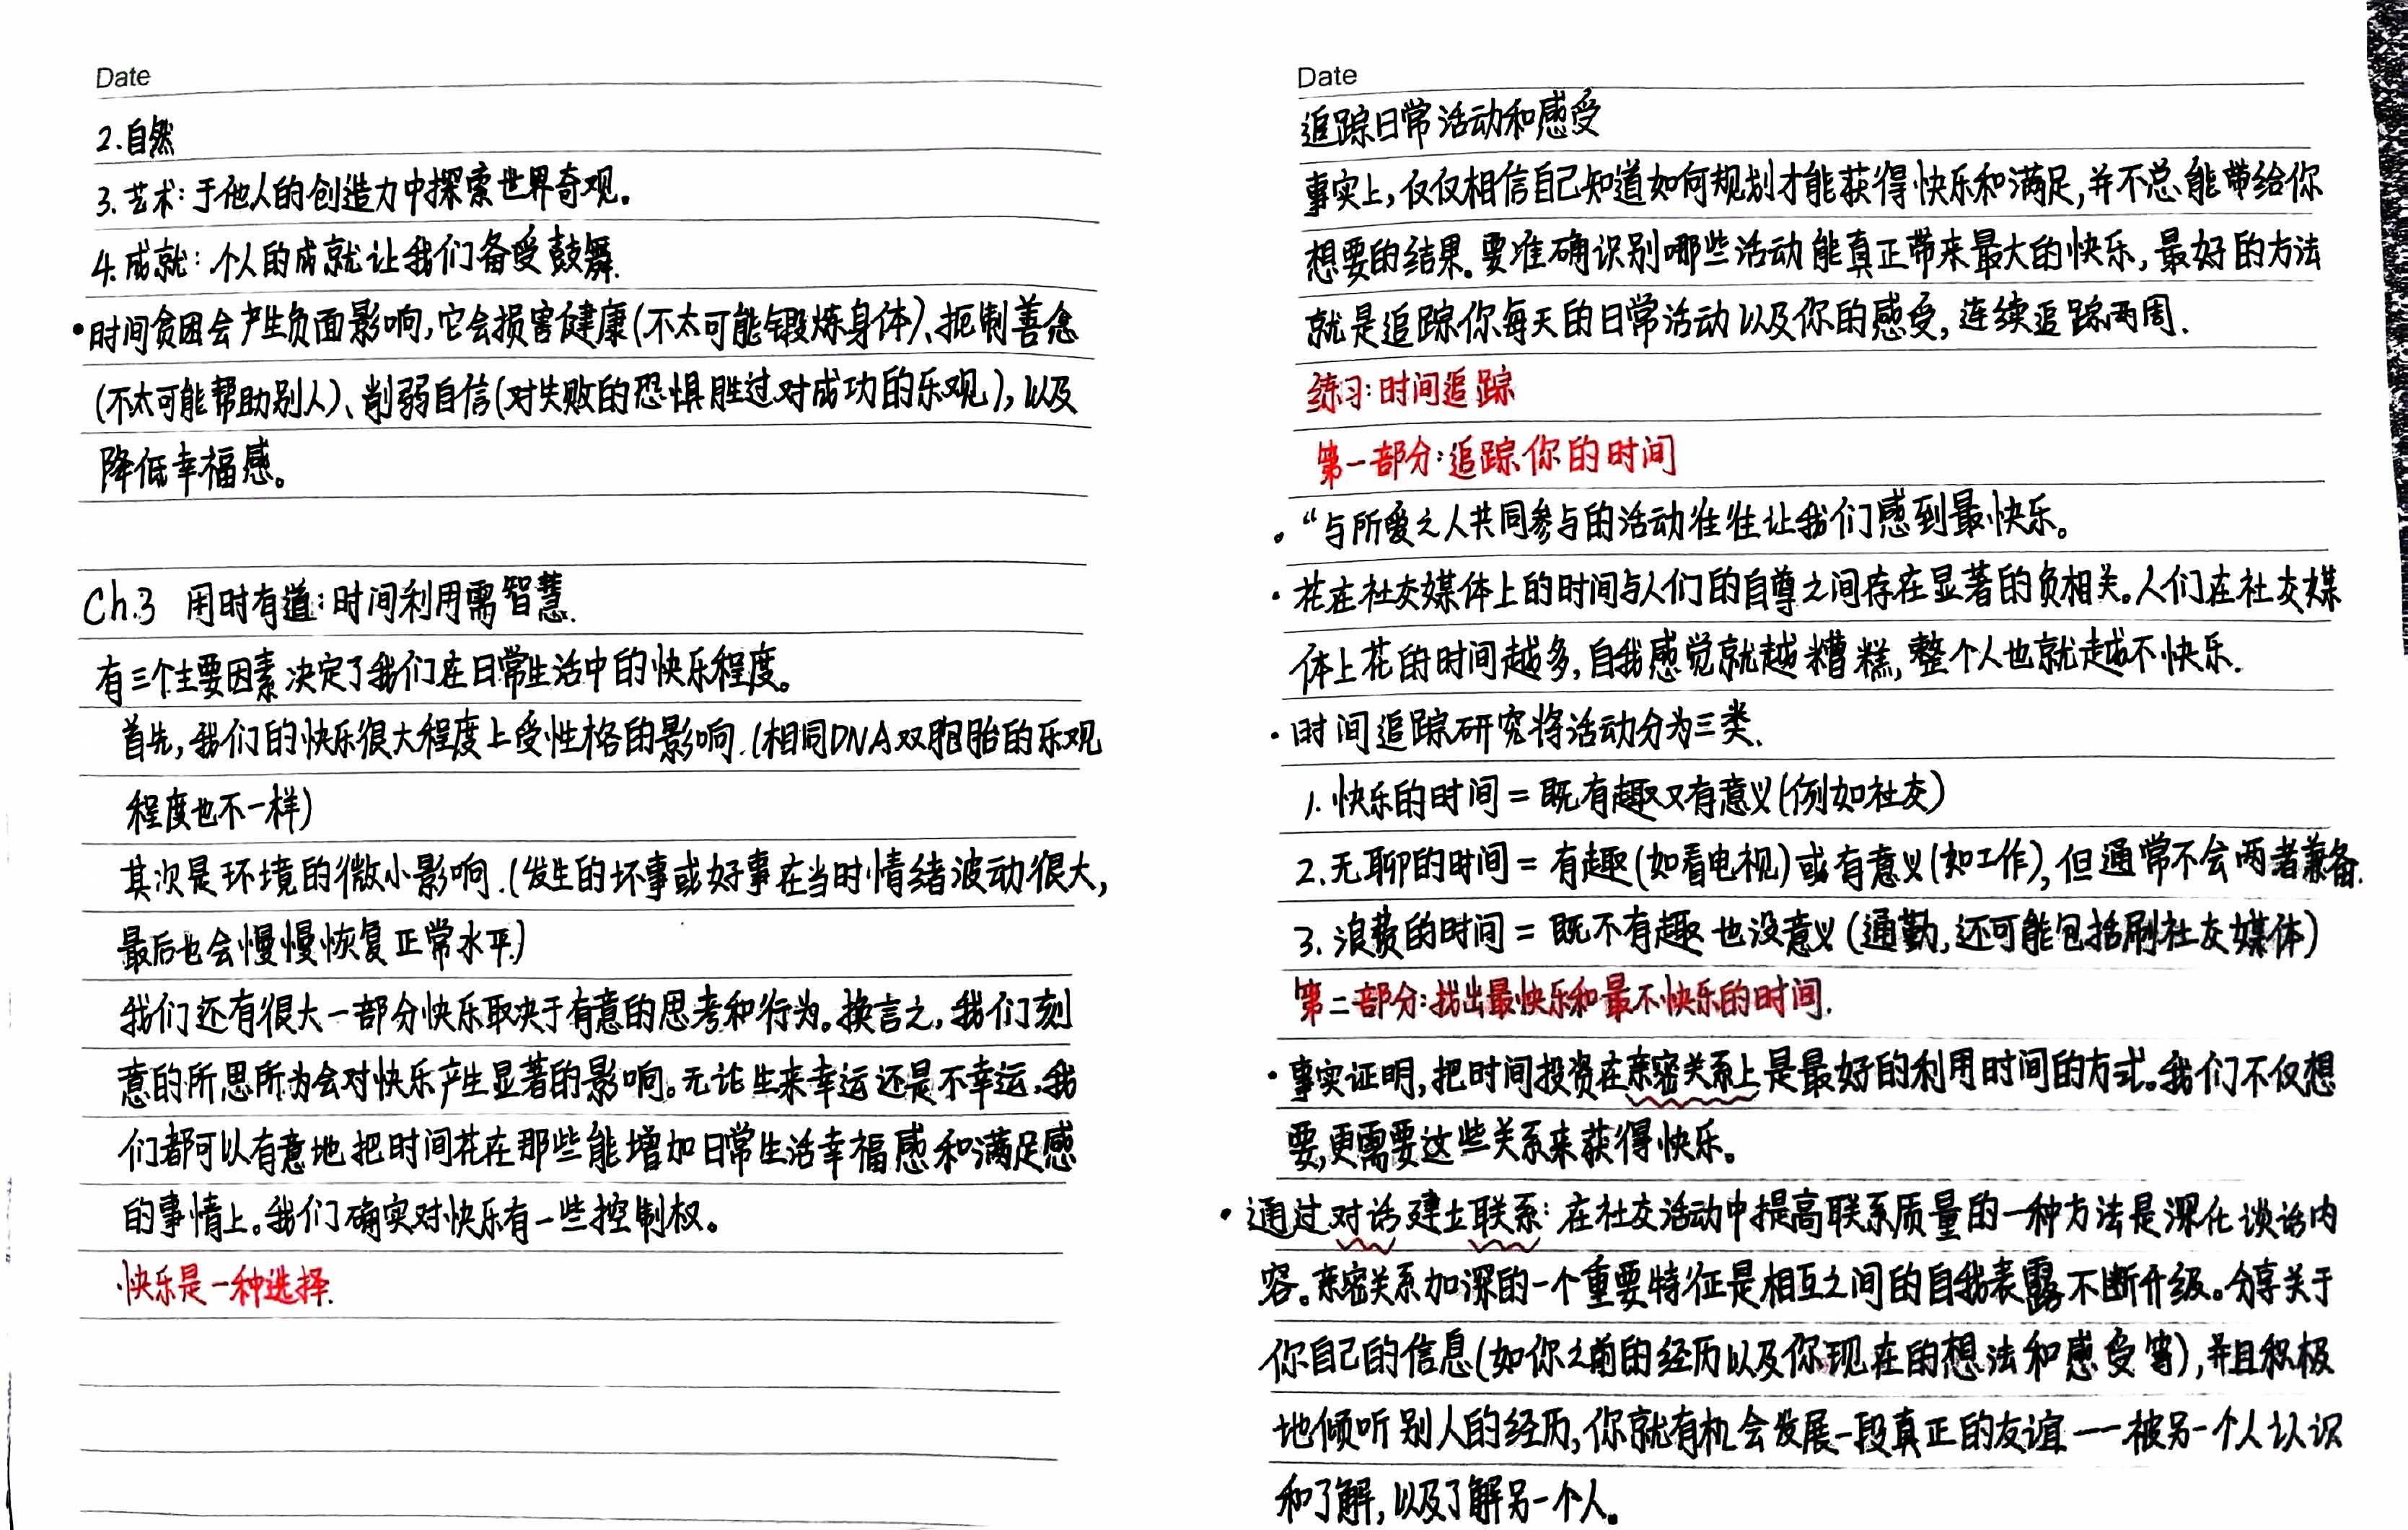 Date
2.自然
3.艺术:于他人的创造力中探索世界奇观。
4.成就:个人的成就让我们备受鼓舞.
•时间贫困会产生负面影响,它会损害健康(不太可能锻炼身体)、扼制善念
(不太可能帮助别人)、削弱自信(对失败的恐惧胜过对成功的乐观),以及
降低幸福感。
Ch.3 用时有道:时间利用需智慧.
有三个主要因素决定了我们在日常生活中的快乐程度。
首先,我们的快乐很大程度上受性格的影响.(相同DNA双胞胎的乐观
程度也不一样)
其次是环境的微小影响.(发生的坏事或好事在当时情绪波动很大,
最后也会慢慢恢复正常水平.)
我们还有很大一部分快乐取决于有意的思考和行为。换言之,我们刻
意的所思所为会对快乐产生显著的影响。无论生来幸运还是不幸运,我
们都可以有意地把时间花在那些能增加日常生活幸福感和满足感
的事情上。我们确实对快乐有一些控制权。
快乐是一种选择.
Date
追踪日常活动和感受
事实上,仅仅相信自己知道如何规划才能获得快乐和满足,并不总能带给你
想要的结果。要准确识别哪些活动能真正带来最大的快乐,最好的方法
就是追踪你每天的日常活动以及你的感受,连续追踪两周.
练习:时间追踪
第一部分:追踪你的时间
•“与所爱之人共同参与的活动往往让我们感到最快乐。
•花在社交媒体上的时间与人们的自尊之间存在显著的负相关。人们在社交媒
体上花的时间越多,自我感觉就越糟糕,整个人也就越不快乐.
•时间追踪研究将活动分为三类.
1.快乐的时间=既有趣又有意义(例如社交)
2.无聊的时间=有趣(如看电视)或有意义(如工作),但通常不会两者兼备.
3.浪费的时间=既不有趣也没意义(通勤,还可能包括刷社交媒体)
第二部分:找出最快乐和最不快乐的时间.
•事实证明,把时间投资在亲密关系上是最好的利用时间的方式。我们不仅想
要,更需要这些关系来获得快乐。
•通过对话建立联系:在社交活动中提高联系质量的一种方法是深化谈话内
容。亲密关系加深的一个重要特征是相互之间的自我表露不断升级。分享关于
你自己的信息(如你之前的经历以及你现在的想法和感受等),并且积极
地倾听别人的经历,你就有机会发展一段真正的友谊——被另一个人认识
和了解,以及了解另一个人。